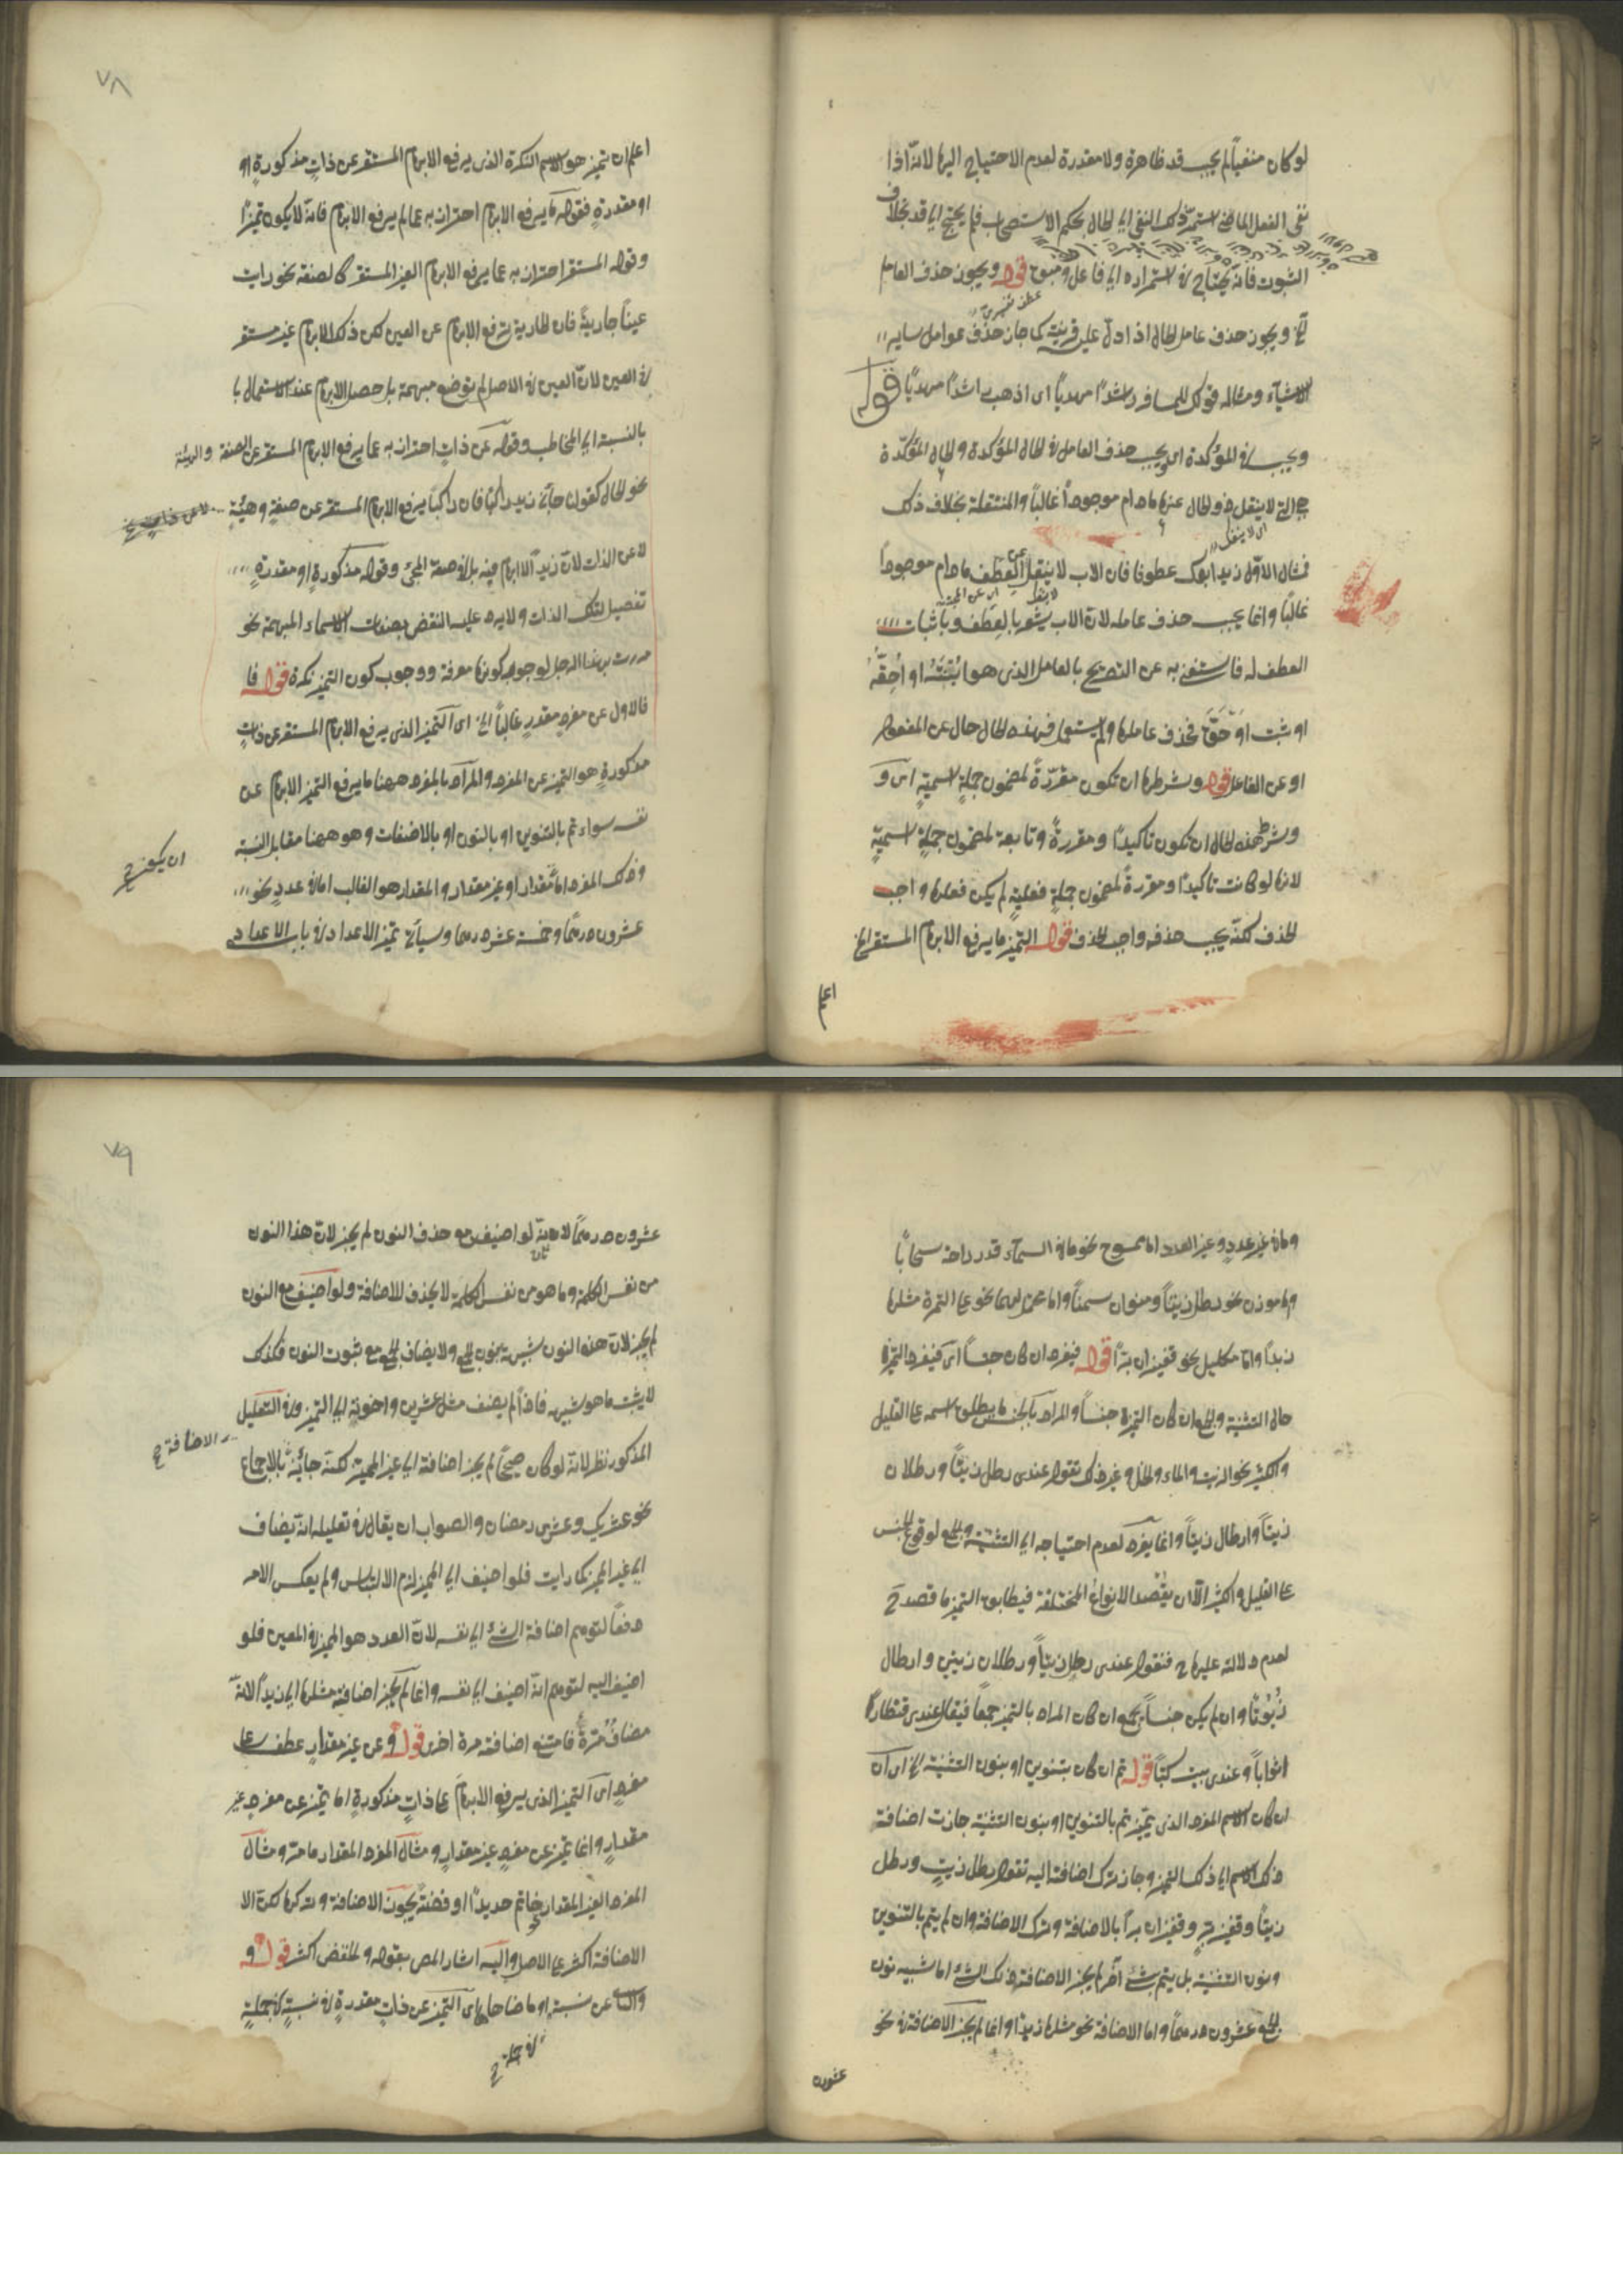 لو كان منفياً لم يجب قد ظاهرة ولا مقدرة لعدم الاحتياج اليها لانه اذا
نفى الفعل الماضى استمر ذلك النفى الى الحال بحكم الاستصحاب فلم يحتج الى قد بخلاف
الثبوت فانه يحتاج فى استمراره الى فاعل ومبوح قوله ويجوز حذف العامل
الخ ويجوز حذف عامل الحال اذا دل عليه قرينة كما جاز حذف عوامل ساير
الاشياء ومثاله قولك للمسافر راشدًا مهديًا اى اذهب راشدًا مهديًا قوله
ويجب فى المؤكدة اى ويجب حذف العامل فى الحال المؤكدة والحال المؤكدة
هى التى لا ينتقل ذو الحال عنها مادام موجوداً غالباً والمنتقلة بخلاف ذلك
اى لا ينتقل
فمثال الاول زيد ابوك عطوفا فان الاب لا ينتقل عن العطف مادام موجوداً
غالبًا وانما يجب حذف عامله لان الاب يشعر بالعطف وباثبات
العطف له فاستغنى به عن التصريح بالعامل الذى هو اثبته او احقه
او ثبت او حق فحذف عاملها ولم يستعمل فهذه الحال حال عن المفعول
او عن الفاعل قوله وشرطها ان تكون مقررة لمضمون جملة اسمية اى و
وشرط هذه الحال ان تكون تاكيدًا ومقررةً وتابعة لمضمون جملة اسمية
لانها لو كانت تاكيدًا ومقررةً لمضمون جملة فعلية لم يكن فعلها واجب
الحذف لكنه يجب حذفه واجب الحذف قوله التميز ما يرفع الابهام المستقر الخ
اعلم
٧٨
اعلم ان تميز هو الاسم النكرة الذى يرفع الابهام المستقر عن ذات مذكورة او
او مقدرة فقوله ما يرفع الابهام احتراز به عما لم يرفع الابهام فانه لا يكون تميزًا
وقوله المستقر احتراز به عما يرفع الابهام الغير المستقر كالصفة نحو رايت
عيناً جاريةً فان الجارية ترفع الابهام عن العين لكن ذلك الابهام غير مستقر
فى العين لان العين فى الاصل لم توضع مبهمة بل حصل الابهام عند الاستعمال با
بالنسبة الى المخاطب وقوله عن ذات احتراز به عما يرفع الابهام المستقر عن الصفة والهيئة
نحو الحال كقولن جآنى زيد راكبًا فان راكبًا يرفع الابهام المستقر عن صفة وهيئة
لا عن الذات لان زيداً لا ابهام فيه بل فى صفة المجئ وقوله مذكورة او مقدرة
تفصيل لتلك الذات ولا يرد عليه النقض بصفات الاسماء المبهمة نحو
مررت بهذا الرجل لوجود كونها معرفة ووجوب كون التميز نكرة قوله فا
فالاول عن مفرد مقدر غالباً الخ اى التميز الذى يرفع الابهام المستقر عن ذات
مذكورة هو التميز عن المفرد والمراد بالمفرد ههنا ما يرفع التميز الابهام عن
نفسه سواء تم بالتنوين او بالنون او بالاضفات وهو ههنا مقابل النسبة
ان يكون
وذلك المفرد اما مقدار او غير مقدار والمقدار هو الغالب اما فى عدد نحو
عشرون درهمًا وخمسة عشر درهما وسيأتى تميز الاعداد فى باب الاعداد
واما فى غير عدد وغير العدد اما ممسوح نحو ما فى السمآء قدر راحة سحابًا
واما موزن نحو رطل زيتاً ومنوان سمناً واما نحو على التمرة مثلها
زبداً واما مكليل نحو قفيزان بتراً قوله فيفرد ان كان جنساً اى فيفرد التميز
حال التثنية والجمع ان كان التميز جنساً والمراد بالجنس ما يطلق اسمه على القليل
والكثير نحو الزيت والماء والخل وغير ذلك تقول عندى رطل زيتًا ورطلان
زيتاً وارطال زيتاً وانما يفرد لعدم احتياجه الى التثنية والجمع لوقوع الجنس
على القليل والكثير الا ان يقصد الانواع المختلفة فيطابق التميز ما قصد
لعدم دلالته عليها ح فنقول عندى رطل زيتاً ورطلان زيتين وارطال
زُيُوتًا وان لم يكن جنساً يجمع ان كان المراد بالتميز جمعاً فيقال عندى قنطاراً
اثواباً وعندى بيت كتباً قوله ثم ان كان بتنوين او بنون التثنية الخ اى ان
ان كان الاسم المفرد الذى يتميز تم بالتنوين او بنون التثنية جازت اضافة
ذلك الاسم الى ذلك التميز وجاز ترك اضافته اليه تقول رطل زيت ورطل
زيتاً وقفيز بر وقفيزان براً بالاضافة وترك الاضافة وان لم يتم بالتنوين
ونون التثنية بل يتم بشئ آخر لم يجز الاضافة ذلك الشئ اما شبيه نون
الجمع عشرون درهمًا واما الاضافة نحو مثلها زيدًا وانما لم يجز الاضافة فى نحو
عشرون
٧٩
عشرون درهمًا لانه لو اضيف مع حذف النون لم يجز لان هذا النون
من نفس الكلمة وما هو من نفس الكلمة لا يحذف للاضافة ولو اضيف مع النون
لم يجز لان هذه النون شبيهة بنون الجمع ولا يضاف الجمع مع ثبوت النون فكذلك
لا يثبت ما هو شبيهه فاذاً لم يضف مثل عشرين واخوته الى التميز وفى التعليل
المذكور نظر لانه لو كان صحيحًا لم يجز اضافته الى غير المميز لكنه جائز بالاجماع
الاضافة
نحو عشريك وعشرى رمضان والصواب ان يقال فى تعليله انه يضاف
الى غير المميز كما رايت فلو اضيف الى المميز لزم الالتباس ولم يعكس الامر
دفعاً لتوهم اضافة الشئ الى نفسه لان العدد هو المميز فى المعين فلو
اضيف اليه لتوهم انه اضيف الى نفسه وانما لم يجز اضافة مثلها الى زيداً لانه
مضاف مرةً فامتنع اضافته مرة اخرى قوله وعن غير مقدار عطف على
مفرد اى التميز الذى يرفع الابهام على ذات مذكورة اما تميز عن مفرد غير
مقدار وانما تميز عن مفرد غير مقدار ومثال المفرد المقدار ما مر ومثال
المفرد الغير المقدار نحو خاتم حديدًا او فضة يجوز الاضافة وتركها لكن الا
الاضافة اكثر على الاصل واليه اشار المص بقوله والخفض اكثر قوله و
والثانى عن نسبة او ما ضاهاها اى التميز عن ذات مقدرة فى نسبة فى جملة
فى جملة